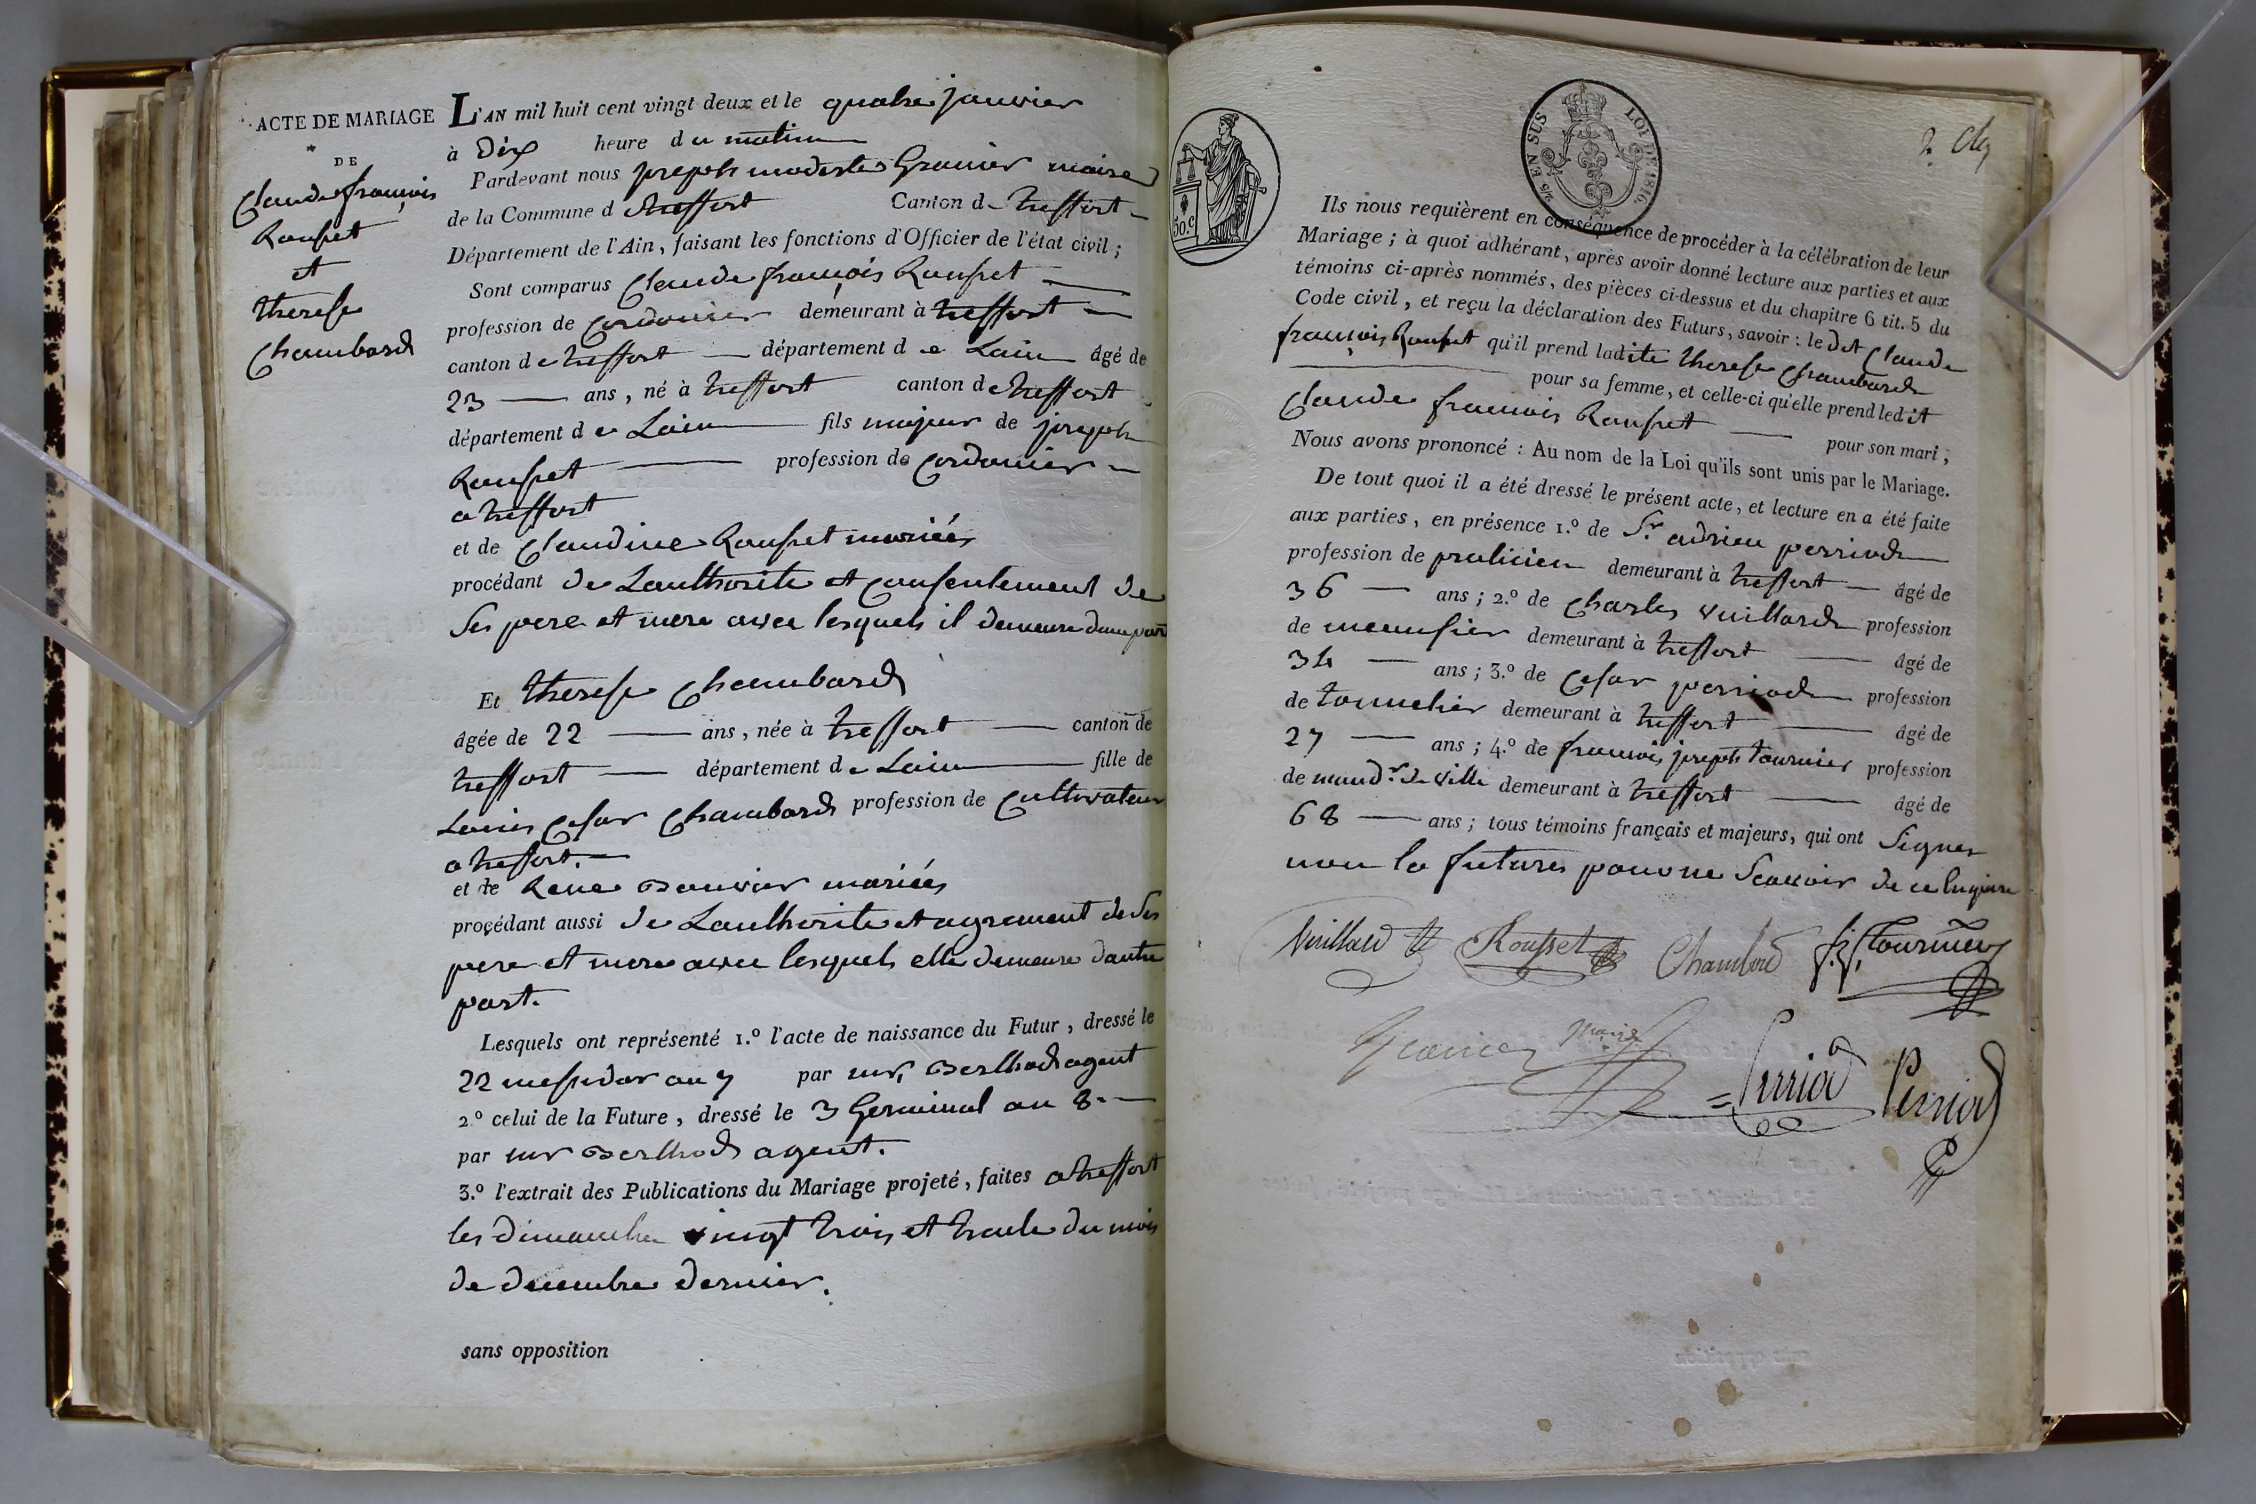 ACTE DE MARIAGE
DE
Claude françois
Rousset
et
therese
Chambard
L'AN mil huit cent vingt deux et le quatre janvier
à Dix heure du matin
Pardevant nous joseph modeste Granier maire
de la Commune de treffort Canton de treffort
Département de l'Ain, faisant les fonctions d'Officier de l'état civil;
Sont comparus Claude françois Rousset
profession de Cordonier demeurant à treffort
canton de treffort département de Lain âgé de
23 ans, né à treffort canton de treffort
département de Lain fils majeur de joseph
Rousset profession de Cordonier
a treffort
et de Claudine Rousset mariés
procédant de Lauthorite et Consentement de
Ses pere et mere avec lesquels il demeure dune part
Et therese Chambard
âgée de 22 ans, née à treffort canton de
treffort département de Lain fille de
Louis Cesar Chambard profession de Cultivateur
a treffort.
et de Reine Bouvier mariés
proçédant aussi de Lauthorite et agrement de Ses
pere et mere avec lesquels elle demeure dautre
part.
Lesquels ont représenté 1.º l'acte de naissance du Futur, dressé le
22 messidor an 7 par mr, Berthod agent
2.º celui de la Future, dressé le 3 Germinal an 8.
par mr Berthod agent.
3.º l'extrait des Publications du Mariage projeté, faites a treffort
les dimanches vingt trois et trente du mois
de decembre dernier.
sans opposition
2/10 EN SUS LOI DE 1816.
50.C
2.
Ils nous requièrent en conséquence de procéder à la célébration de leur
Mariage; à quoi adhérant, après avoir donné lecture aux parties et aux
témoins ci-après nommés, des pièces ci-dessus et du chapitre 6 tit. 5 du
Code civil, et reçu la déclaration des Futurs, savoir: le dit Claude
françois Rousset qu'il prend ladite therese Chambard
pour sa femme, et celle-ci qu'elle prend ledit
Claude francois Rousset pour son mari;
Nous avons prononcé: Au nom de la Loi qu'ils sont unis par le Mariage.
De tout quoi il a été dressé le présent acte, et lecture en a été faite
aux parties, en présence 1.º de Sr. adrien perriod
profession de praticien demeurant à treffort âgé de
36 ans; 2.º de Charles vuillard profession
de menusier demeurant à treffort âgé de
34 ans; 3.º de Cesar perriod profession
de tonnelier demeurant à treffort âgé de
27 ans; 4.º de francois joseph tournier profession
de mand.r de ville demeurant à treffort âgé de
68 ans; tous témoins français et majeurs, qui ont Signes
non la future pour ne Scavoir de ce Enquise
Vuillard Rousset Chambard f. j. Tournier
Granier maire Perriod Perriod